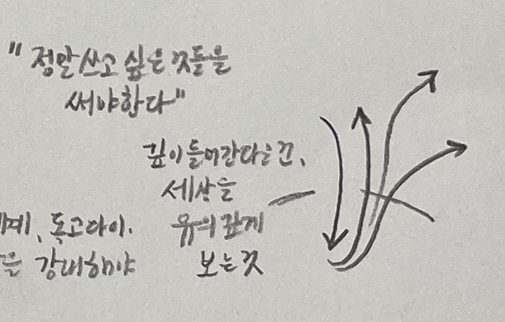 "정말 쓰고 싶은 것들을
써야한다"
깊이 들어간다는 건,
세상을
유의 깊게
보는 것
독고다이.
강대해야